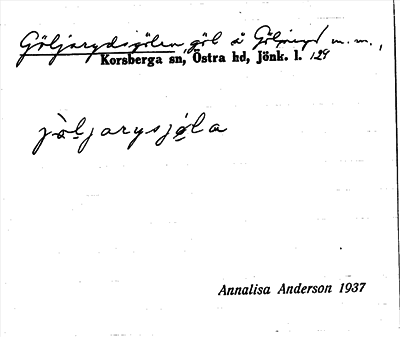 Göljarydsgölen, göl å Göljaryd m.m.,
Korsberga sn, Östra hd, Jönk. l. 129
jöljarysjöla
Annalisa Anderson 1937